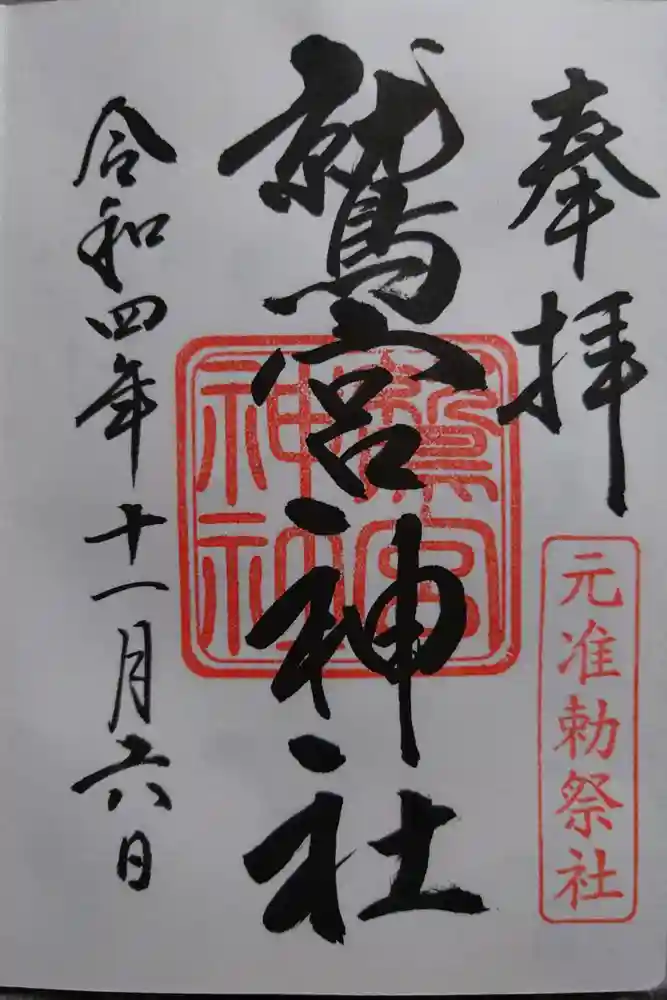 奉拝
元准勅祭社
鷲宮神社
鷲宮
神社
令和四年十一月六日